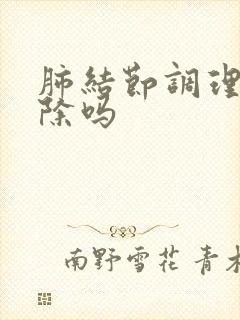 肺結節調理
除吗
南野雪花 青木